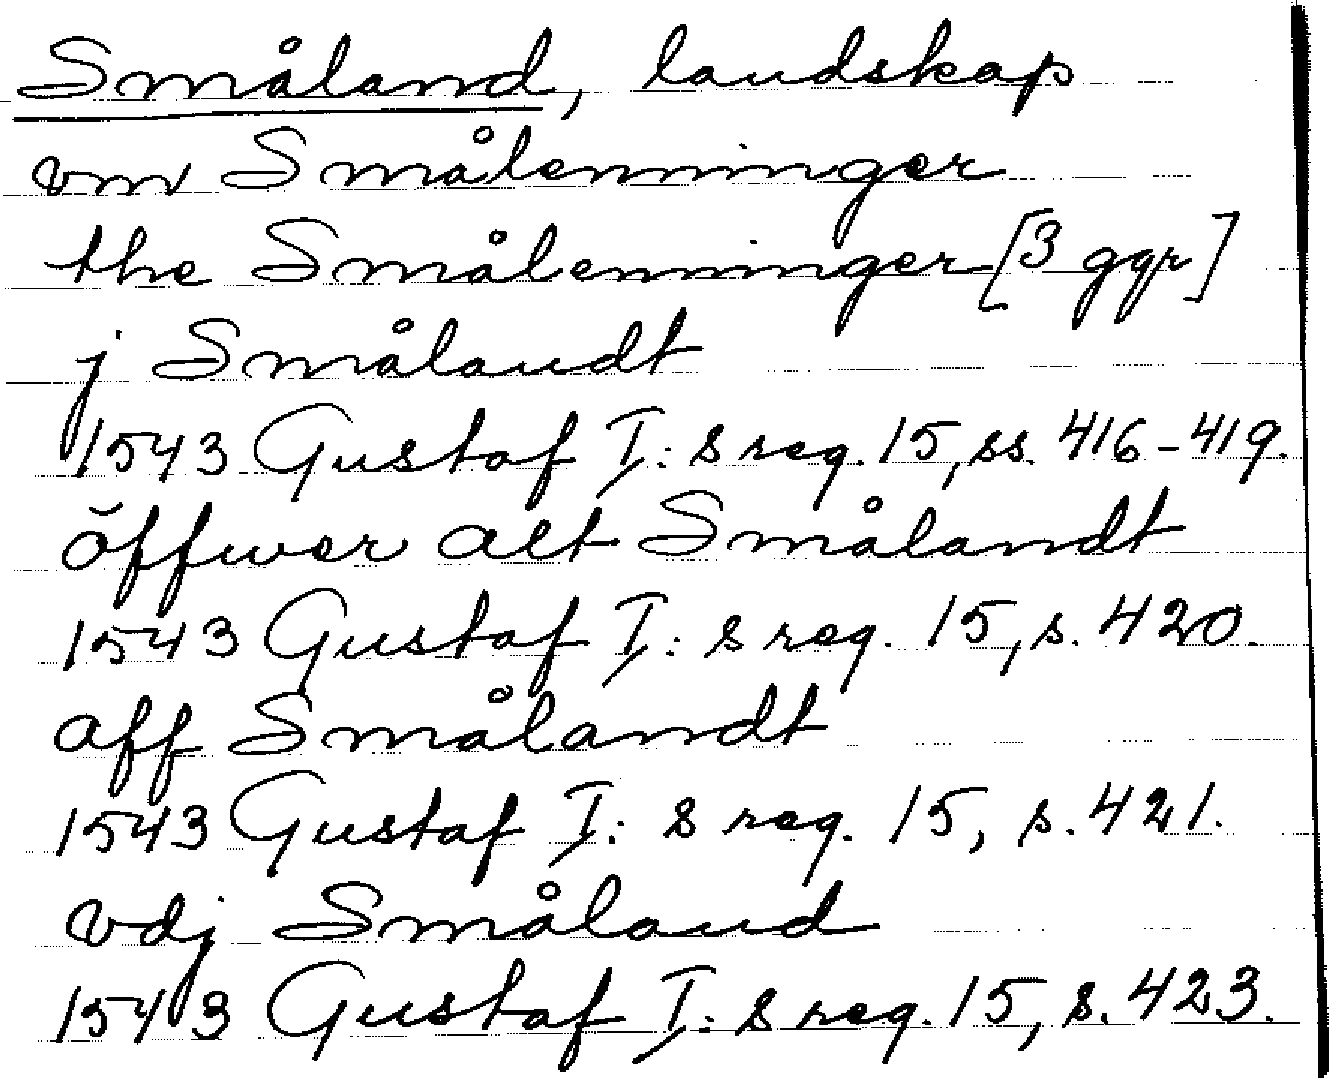 Småland, landskap
vm Smålenninger
the Smålenninger [3 ggr]
j Smålandt
1543 Gustaf I: s reg. 15, ss. 416-419.
öffwer alt Smålandt
1543 Gustaf I: s reg. 15, s. 420.
aff Smålandt
1543 Gustaf I: s reg. 15, s. 421.
vdj Småland
1543 Gustaf I: s reg. 15, s. 423.